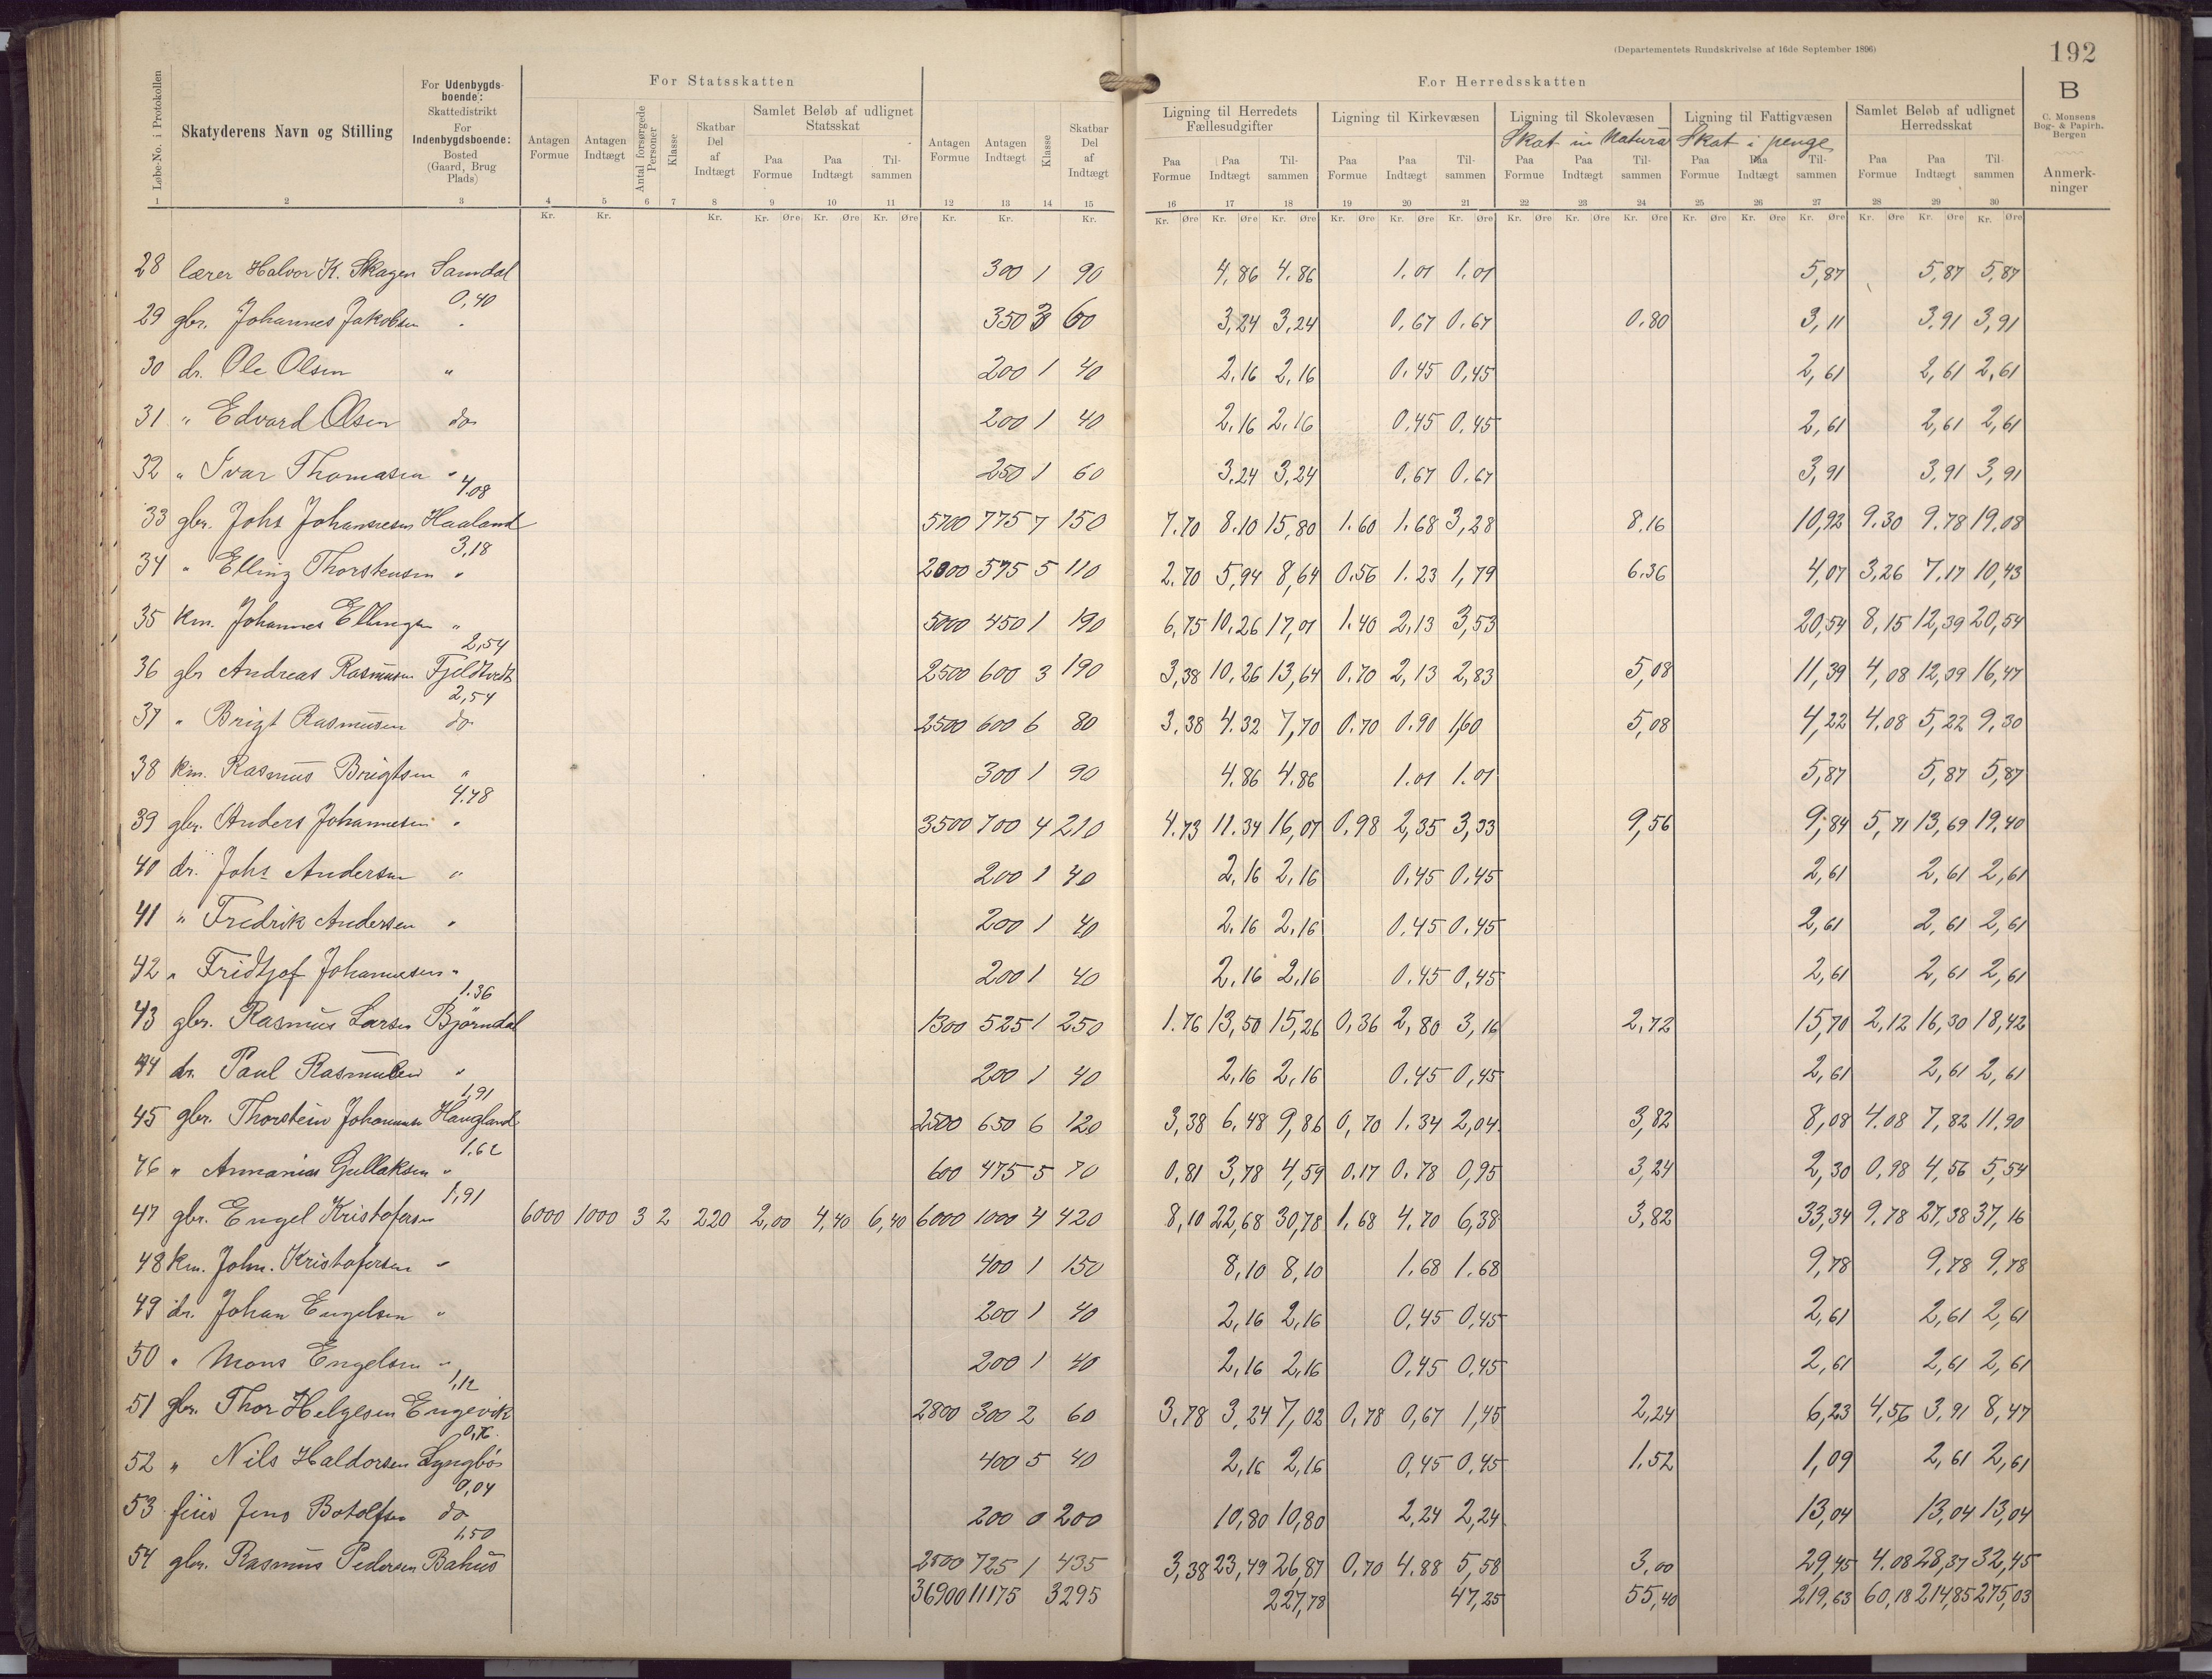 (Departementets Rundskrivelse af 16de September 1896)
192
B
C. Monsens
Bog- & Papirh.
Bergen
Løbe-No. i Protokollen
Skatyderens Navn og Stilling
For Udenbygdsboende:
Skattedistrikt
For
Indenbygdsboende:
Bosted
(Gaard, Brug
Plads)
For Statsskatten
Antagen Formue
Antagen Indtægt
Antal forsørgede Personer
Klasse
Skatbar Del af Indtægt
Samlet Beløb af udlignet Statsskat
Paa Formue
Paa Indtægt
Tilsammen
Antagen Formue
Antagen Indtægt
Klasse
Skatbar Del af Indtægt
For Herredsskatten
Ligning til Herredets Fællesudgifter
Ligning til Kirkevæsen
Ligning til Skolevæsen
Skat in Natura
Ligning til Fattigvæsen
Skat i penge
Samlet Beløb af udlignet Herredsskat
Paa Formue Paa Indtægt Tilsammen Paa Formue Paa Indtægt Tilsammen Paa Formue Paa Indtægt Tilsammen Paa Formue Paa Indtægt Tilsammen Paa Formue Paa Indtægt Tilsammen
Anmerkninger
1 2 3 4 5 6 7 8 9 10 11 12 13 14 15 16 17 18 19 20 21 22 23 24 25 26 27 28 29 30
28 lærer Halvor K. Skagen Samdal 300 1 90 4.86 4.86 1.01 1.01 5,87 5,87 5,87
0,40
29 gbr. Johannes Jakobsen " 350 3 60 3,24 3,24 0,67 0.67 0.80 3,11 3.91 3,91
30 dr. Ole Olsen " 200 1 40 2.16 2,16 0.45 0,45 2,61 2,61 2,61
31 " Edvard Olsen do 200 1 40 2,16 2,16 0.45 0.45 2,61 2,61 2,61
32 " Ivar Thomasen " 250 1 60 3.24 3,24 0,67 0.67 3,91 3,91 3,91
4.08
33 gbr. Johs Johannesen Haaland 5700 775 7 150 7.70 8.10 15,80 1.60 1.68 3,28 8.16 10,92 9.30 9.78 19.08
3,18
34 " Elling Thorstensen " 2000 575 5 110 2.70 5,94 8,64 0.56 1.23 1,79 6.36 4,07 3,26 7.17 10,43
35 km. Johannes Ellingsen " 5000 450 1 190 6,75 10,26 17,01 1.40 2,13 3,53 20,54 8,15 12,39 20,54
2,54
36 gbr Andreas Rasmusen Fjeldtvedt 2500 600 3 190 3,38 10,26 13,64 0.70 2,13 2,83 5,08 11,39 4,08 12,39 16,47
2,54
37 " Brigt Rasmusen do 2500 600 6 80 3,38 4.32 7,70 0.70 0.90 1,60 5,08 4,22 4.08 5,22 9,30
38 km. Rasmus Brigtsen " 300 1 90 4.86 4.86 1.01 1.01 5,87 5,87 5,87
4.78
39 gbr. Anders Johannesen " 3500 700 4 210 4.73 11.34 16,07 0,98 2,35 3,33 9,56 9,84 5,71 13,69 19,40
40 dr. Johs Andersen " 200 1 40 2,16 2,16 0.45 0.45 2,61 2,61 2,61
41 " Fredrik Andersen " 200 1 40 2.16 2,16 0.45 0.45 2,61 2,61 2,61
42 " Fridtjof Johannesen " 200 1 40 2,16 2,16 0.45 0,45 2,61 2,61 2,61
1.36
43 gbr. Rasmus Larsen Bjørndal 1300 525 1 250 1.76 13,50 15,26 0,36 2,80 3,16 2,72 15,70 2,12 16,30 18,42
44 dr. Paul Rasmusen " 200 1 40 2,16 2,16 0.45 0,45 2,61 2,61 2,61
1,91
45 gbr. Thorstein Johannesen Haugland 2500 650 6 120 3,38 6,48 9,86 0,70 1.34 2,04 3,82 8,08 4.08 7,82 11.90
1.62
46 " Annanias Gullaksen " 600 475 5 70 0,81 3,78 4,59 0.17 0.78 0,95 3,24 2,30 0,98 4,56 5,54
1,91
47 gbr. Engel Kristofersen 6000 1000 3 2 220 2,00 4,40 6,40 6000 1000 4 420 8,10 22,68 30,78 1,68 4,70 6,38 3,82 33,34 9.78 27,38 37,16
48 km. John. Kristofersen " 400 1 150 8,10 8,10 1.68 1.68 9,78 9.78 9,78
49 dr. Johan Engelsen " 200 1 40 2,16 2,16 0,45 0,45 2,61 2,61 2,61
50 " Mons Engelsen " 200 1 40 2,16 2,16 0,45 0,45 2,61 2,61 2,61
1,12
51 gbr. Thor Helgesen Engevik 2800 300 2 60 3,78 3,24 7,02 0,78 0,67 1,45 2,24 6,23 4,56 3,91 8,47
0,76
52 " Nils Haldorsen Lyngbø 400 5 40 2,16 2,16 0,45 0,45 1.52 1,09 2,61 2,61
0,04
53 Jens Botolfsen do 200 0 200 10,80 10,80 2,24 2,24 13,04 13,04 13,04
1,50
54 gbr. Rasmus Pedersen Bahus 2500 725 1 435 3,38 23,49 26,87 0,70 4.88 5,58 3,00 29,45 4.08 28,37 32,45
36900 11175 3295 227,78 47,25 55,40 219,63 60,18 214,85 275,03